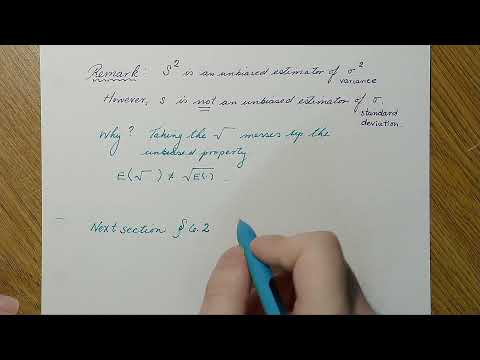 Remark: S² is an unbiased estimator of σ²
variance
However, S is not an unbiased estimator of σ.
standard
deviation
Why? Taking the √ messes up the
unbiased property
E(√ ) ≠ √E(·) .
Next section § 6.2